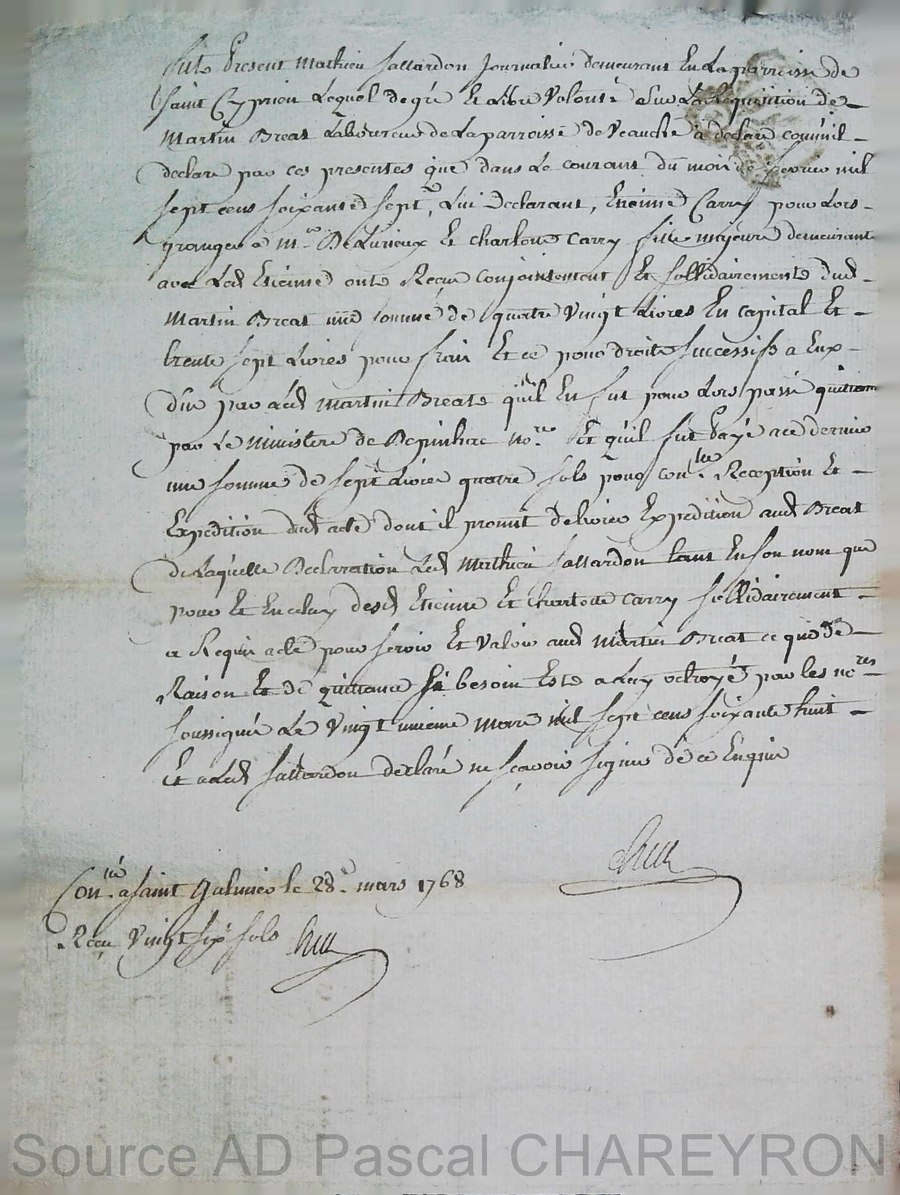 Fut Present Mathieu fallardon Journalier demeurant En La parroisse de
Saint Cyprien Lequel de gré et Libre Volonté a Sur La Requisition de
Martin Breat Laboureur de La parroisse de Veauche a declaré comme il
declare par ces presentes que dans Le courant du mois de fevrier mil
sept cens soixante sept, Lui Declarant, Etienne Carry pour Lors
granger a Mr. De Lurieux Et charlotte Carry fille majeure demeurante
avec Led Etienne onts Reçu Conjointement Et sollidairement dud
Martin Breat une somme de quatre Vingt Livres En capital Et
trente sept Livres pour frais Et ce pour droits successifs a Eux
dus par Led Martin Breat qu'il En fut pour Lors passé quittance
par Le Ministere de no.re Et qu'il fut payé a ce dernier
une somme de sept Livres quatre sols pour con.lle Reception Et
Expedition dud acte dont il promit delivrer Expedition aud Breat
de Laquelle Declarration Led Mathieu fallardon tant En son nom que
pour Et En celuy desd Etienne Et Charlotte Carry sollidairement
a Requis acte pour servir Et Valoir aud Martin Breat ce que de
Raison Et de quittance si besoin Este a Luy octroyé par les no.res
soussignés Le Vingt unieme mars mil sept cens soixante huit
Et a Led fallardon declaré ne sçavoir signer de ce Enquis
Con.lé a Saint Galmier le 28e. mars 1768
Reçu Vingt six sols
Source AD Pascal CHAREYRON